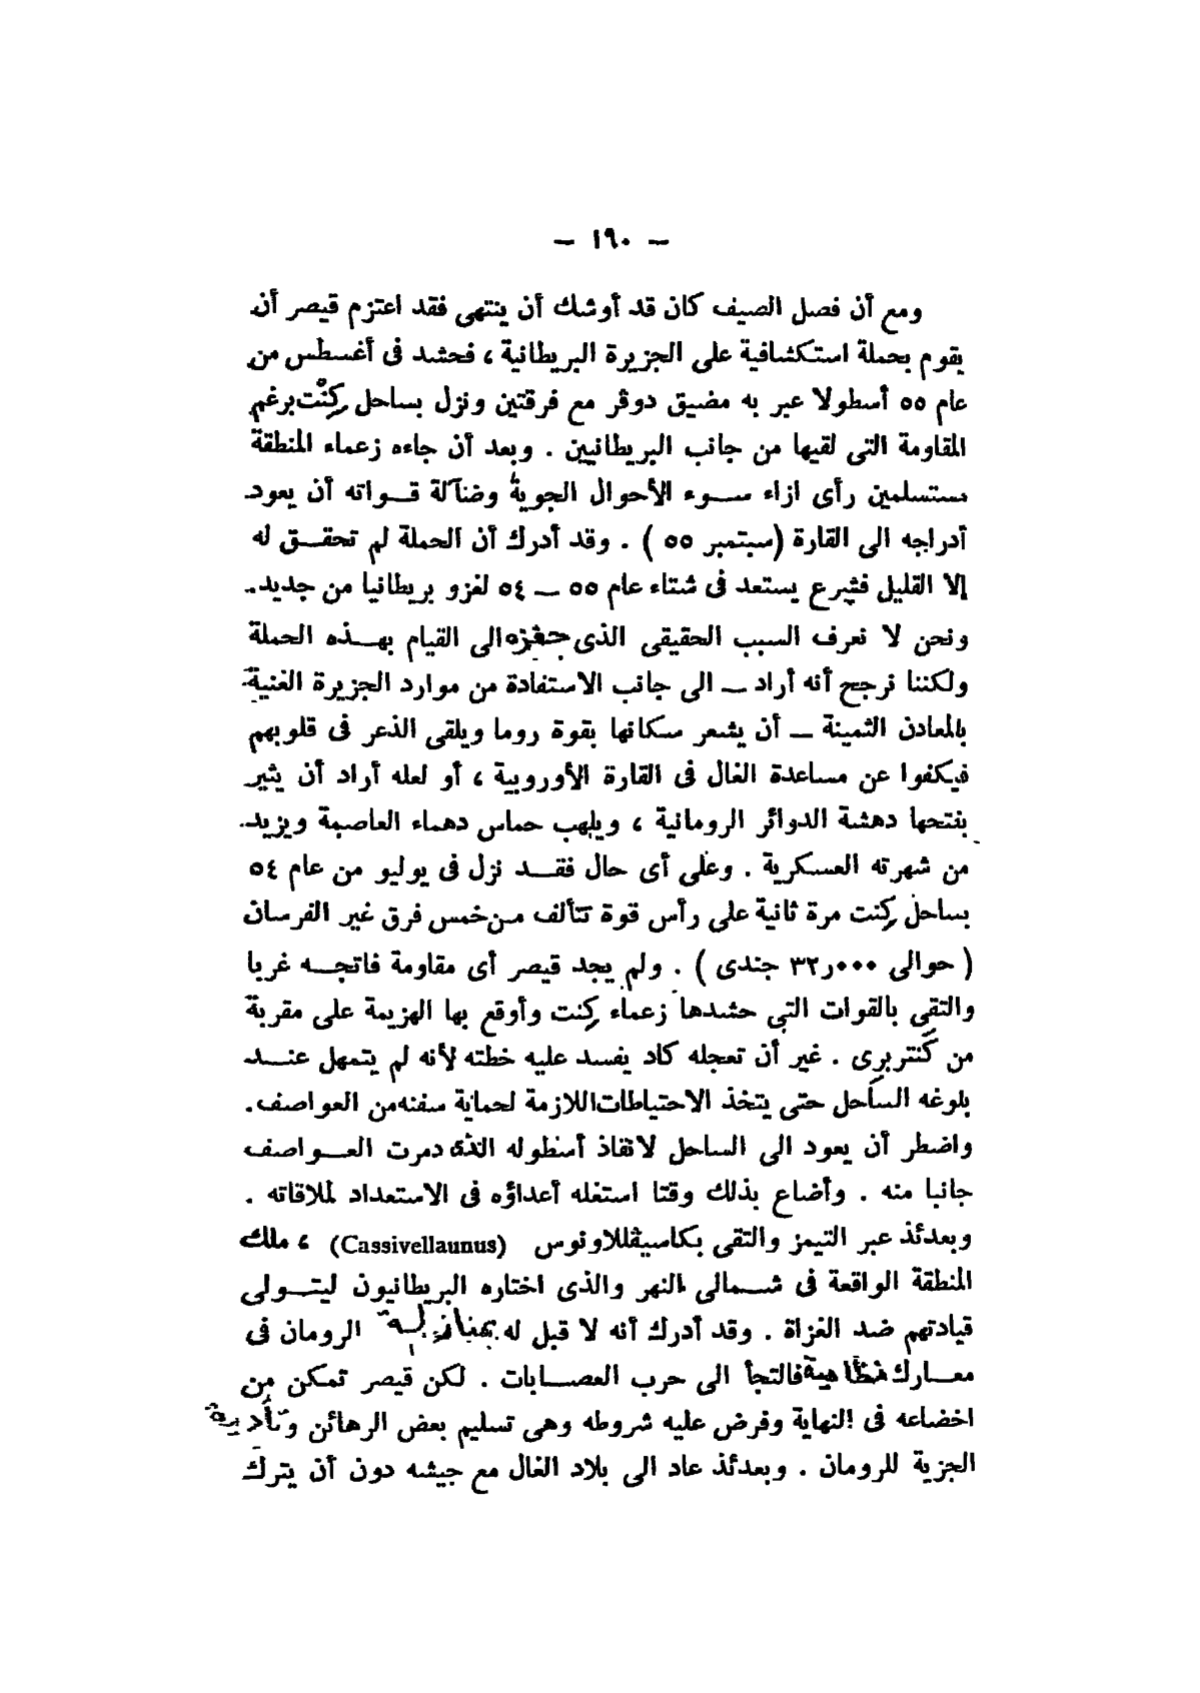 — ١٩٠ —
ومع أن فصل الصيف كان قد أوشك أن ينتهى فقد اعتزم قيصر أن
يقوم بحملة استكشافية على الجزيرة البريطانية ، فحشد فى أغسطس من
عام ٥٥ أسطولا عبر به مضيق دوڤر مع فرقتين ونزل بساحل كِنْت برغم
المقاومة التى لقيها من جانب البريطانيين . وبعد أن جاءه زعماء المنطقة
مستسلمين رأى ازاء سوء الأحوال الجوية وضآلة قواته أن يعود
أدراجه الى القارة (سبتمبر ٥٥ ) . وقد أدرك أن الحملة لم تحقق له
إلا القليل فشرع يستعد فى شتاء عام ٥٥ — ٥٤ لغزو بريطانيا من جديد .
ونحن لا نعرف السبب الحقيقى الذى حفزه الى القيام بهذه الحملة
ولكننا نرجح أنه أراد — الى جانب الاستفادة من موارد الجزيرة الغنية
بالمعادن الثمينة — أن يشعر سكانها بقوة روما ويلقى الذعر فى قلوبهم
فيكفوا عن مساعدة الغال فى القارة الأوروبية ، أو لعله أراد أن يثير
بفتحها دهشة الدوائر الرومانية ، ويلهب حماس دهماء العاصمة ويزيد
من شهرته العسكرية . وعلى أى حال فقد نزل فى يوليو من عام ٥٤
بساحل كِنت مرة ثانية على رأس قوة تتألف من خمس فرق غير الفرسان
( حوالى ٣٢ر٠٠٠ جندى ) . ولم يجد قيصر أى مقاومة فاتجه غربا
والتقى بالقوات التى حشدها زعماء كِنت وأوقع بها الهزيمة على مقربة
من كَنتربرى . غير أن تعجله كاد يفسد عليه خطته لأنه لم يتمهل عند
بلوغه الساحل حتى يتخذ الاحتياطات اللازمة لحماية سفنه من العواصف .
واضطر أن يعود الى الساحل لانقاذ أسطوله الذى دمرت العواصف
جانبا منه . وأضاع بذلك وقتا استغله أعداؤه فى الاستعداد لملاقاته .
وبعدئذ عبر التيمز والتقى بكاسيڤللاونوس (Cassivellaunus) ، ملك
المنطقة الواقعة فى شمالى النهر والذى اختاره البريطانيون ليتولى
قيادتهم ضد الغزاة . وقد أدرك أنه لا قبل له بمنازلة الرومان فى
معارك نظامية فالتجأ الى حرب العصابات . لكن قيصر تمكن من
اخضاعه فى النهاية وفرض عليه شروطه وهى تسليم بعض الرهائن وتأدية
الجزية للرومان . وبعدئذ عاد الى بلاد الغال مع جيشه دون أن يترك